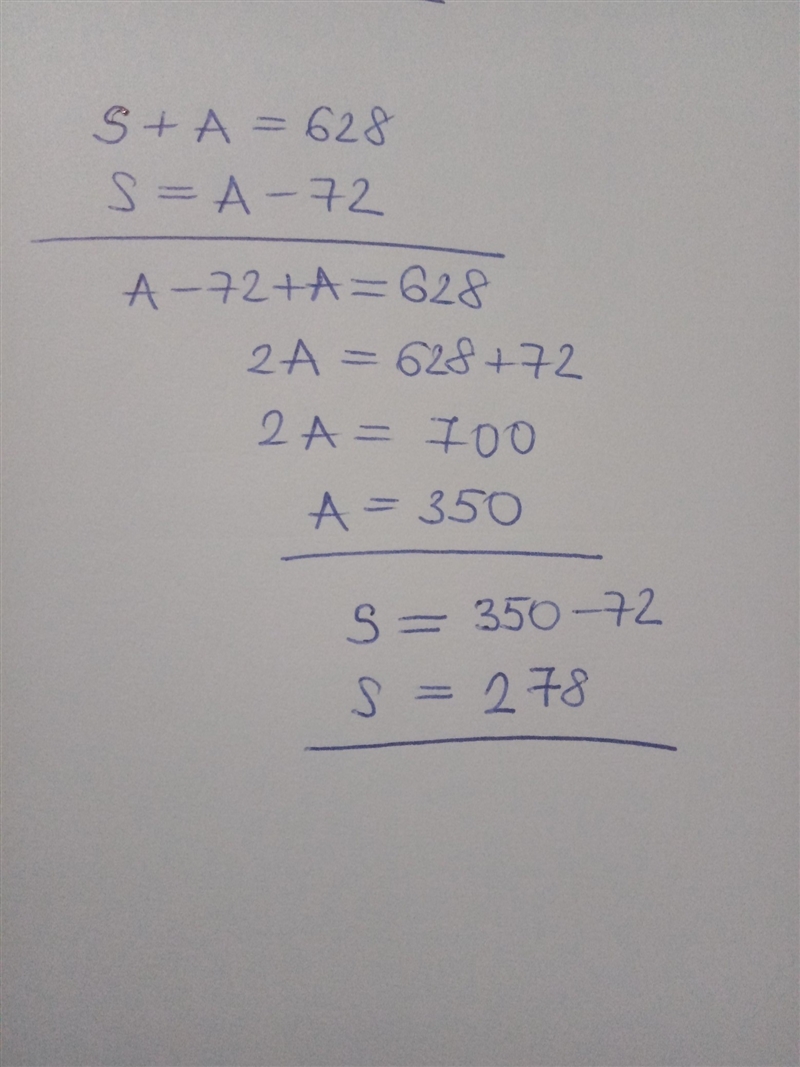 S + A = 628
S = A - 72
A - 72 + A = 628
2A = 628 + 72
2A = 700
A = 350
S = 350 - 72
S = 278